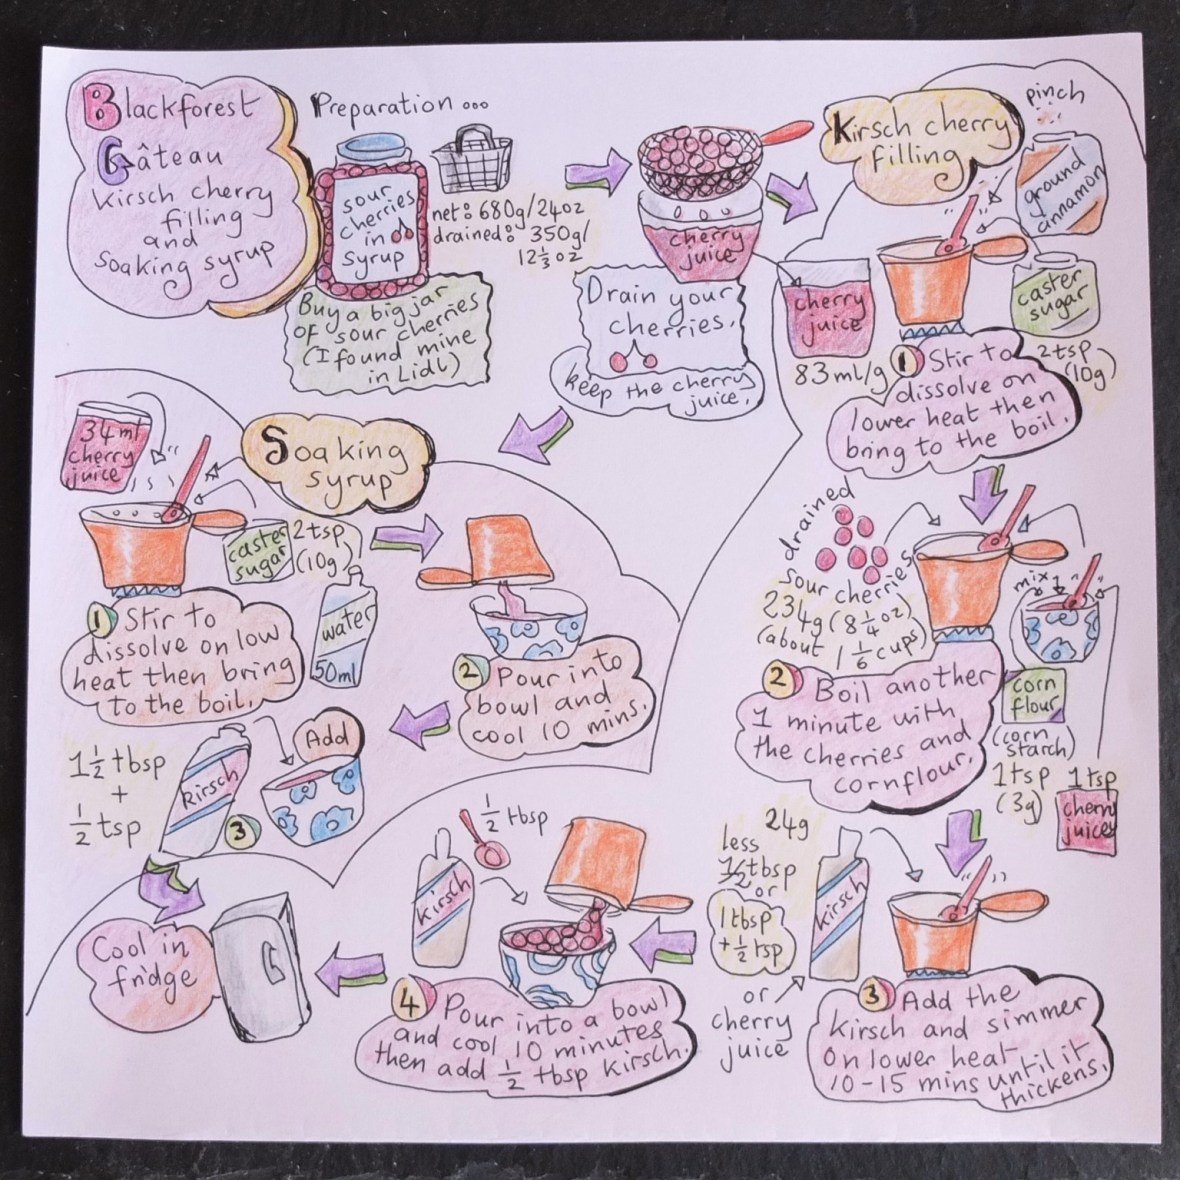 Blackforest
Gâteau
Kirsch cherry
filling
and
Soaking syrup
Preparation...
sour
cherries
in
syrup
net: 680g/24oz
drained: 350g/
12 1/3 oz
Buy a big jar
of sour cherries
(I found mine
in Lidl)
cherry
juice
Drain your
cherries.
keep the cherry
juice.
Kirsch cherry
filling
pinch
ground
cinnamon
cherry
juice
83ml/g
caster
sugar
2tsp
(10g)
1 Stir to
dissolve on
lower heat then
bring to the boil.
drained
sour cherries
234g (8 1/4 oz)
(about 1 1/6 cups)
mix
corn
flour
(corn
starch)
1tsp
(3g)
1tsp
cherry
juice
2 Boil another
1 minute with
the cherries and
cornflour.
24g
less
1 1/2 tbsp
or
1 tbsp
+ 1/2 tsp
or
cherry
juice
kirsch
3 Add the
kirsch and simmer
on lower heat
10-15 mins until it
thickens.
kirsch
1/2 tbsp
4 Pour into a bowl
and cool 10 minutes
then add 1/2 tbsp kirsch.
Soaking
syrup
34ml
cherry
juice
caster
sugar
2tsp
(10g)
water
50ml
1 Stir to
dissolve on low
heat then bring
to the boil.
2 Pour into
bowl and
cool 10 mins.
Add
1 1/2 tbsp
+
1/2 tsp
Kirsch
3
Cool in
fridge